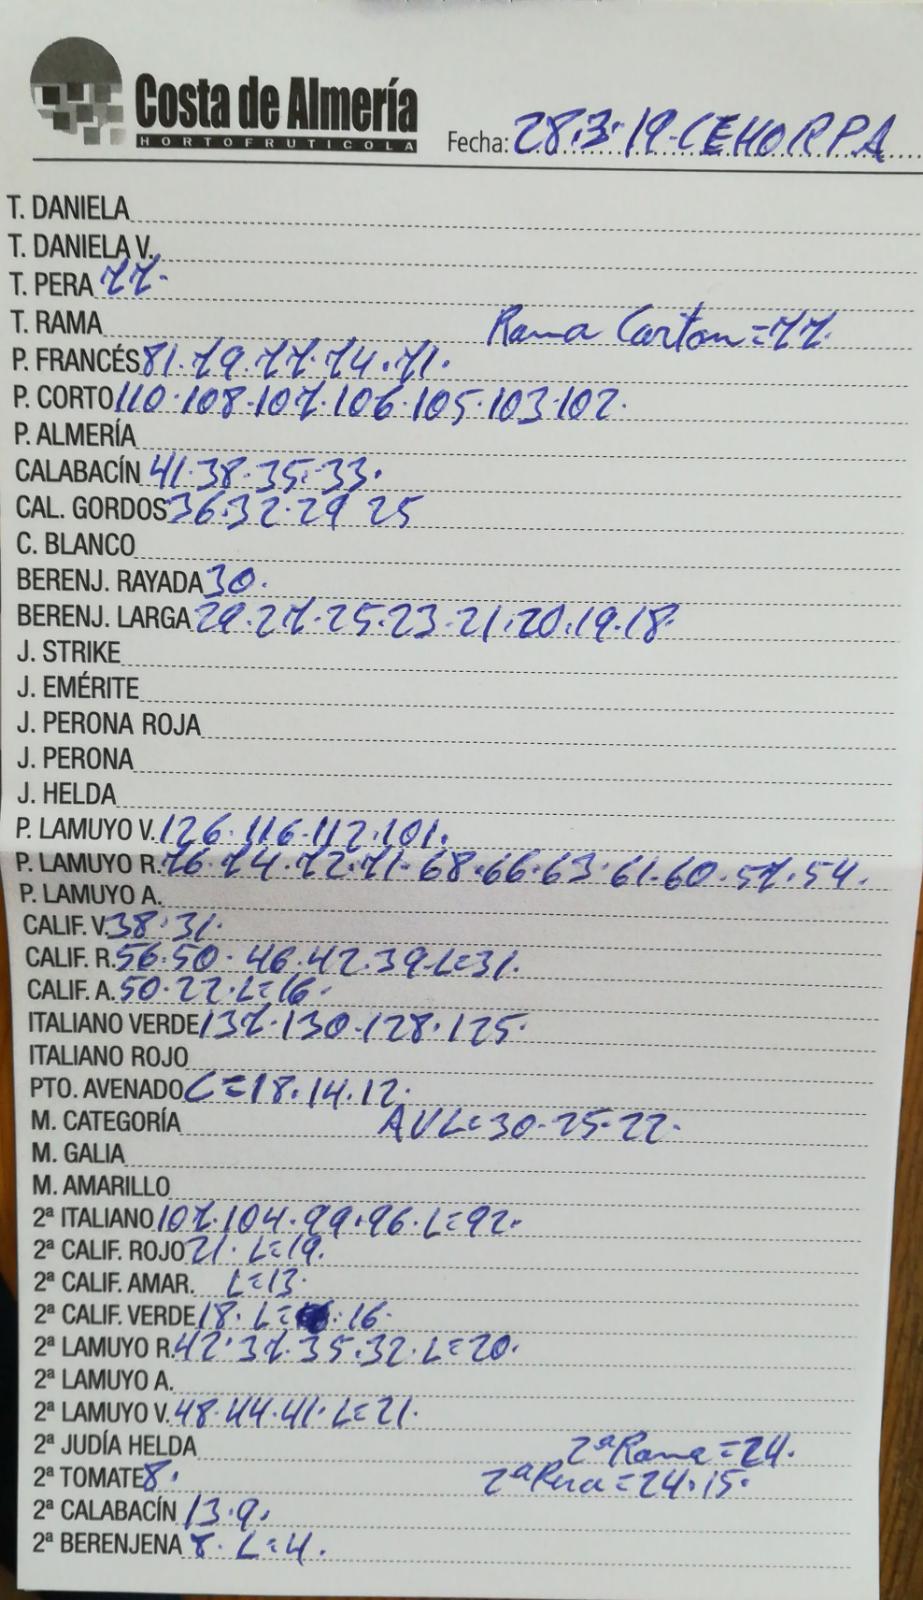 Costa de Almería
HORTOFRUTICOLA
Fecha: 28.3.19-CEHORPA
T. DANIELA
T. DANIELA V.
T. PERA 77.
T. RAMA Rama Carton=77.
P. FRANCÉS 81.79.77.74.71.
P. CORTO 110.108.107.106.105.103.102.
P. ALMERÍA
CALABACÍN 41.38.35.33.
CAL. GORDOS 36.32.29 25
C. BLANCO
BERENJ. RAYADA 30.
BERENJ. LARGA 29.27.25.23.21.20.19.18.
J. STRIKE
J. EMÉRITE
J. PERONA ROJA
J. PERONA
J. HELDA
P. LAMUYO V. 126.116.112.101.
P. LAMUYO R. 76.74.72.71-68.66.63.61.60.57.54.
P. LAMUYO A.
CALIF. V. 38.31.
CALIF. R. 56.50.46.42.39.L=31.
CALIF. A. 50.22.L=16.
ITALIANO VERDE 137.130.128.125.
ITALIANO ROJO
PTO. AVENADO C=18.14.12.
M. CATEGORÍA AVL=30.25.22.
M. GALIA
M. AMARILLO
2ª ITALIANO 107.104.99.96.L=92.
2ª CALIF. ROJO 21. L=19.
2ª CALIF. AMAR. L=13.
2ª CALIF. VERDE 18. L= 16.
2ª LAMUYO R. 42.37.35.32.L=20.
2ª LAMUYO A.
2ª LAMUYO V. 48.44.41.L=21.
2ª JUDÍA HELDA 2ªRama=24.
2ª TOMATE 8. 2ªPera=24.15.
2ª CALABACÍN 13.9.
2ª BERENJENA 8. L=4.